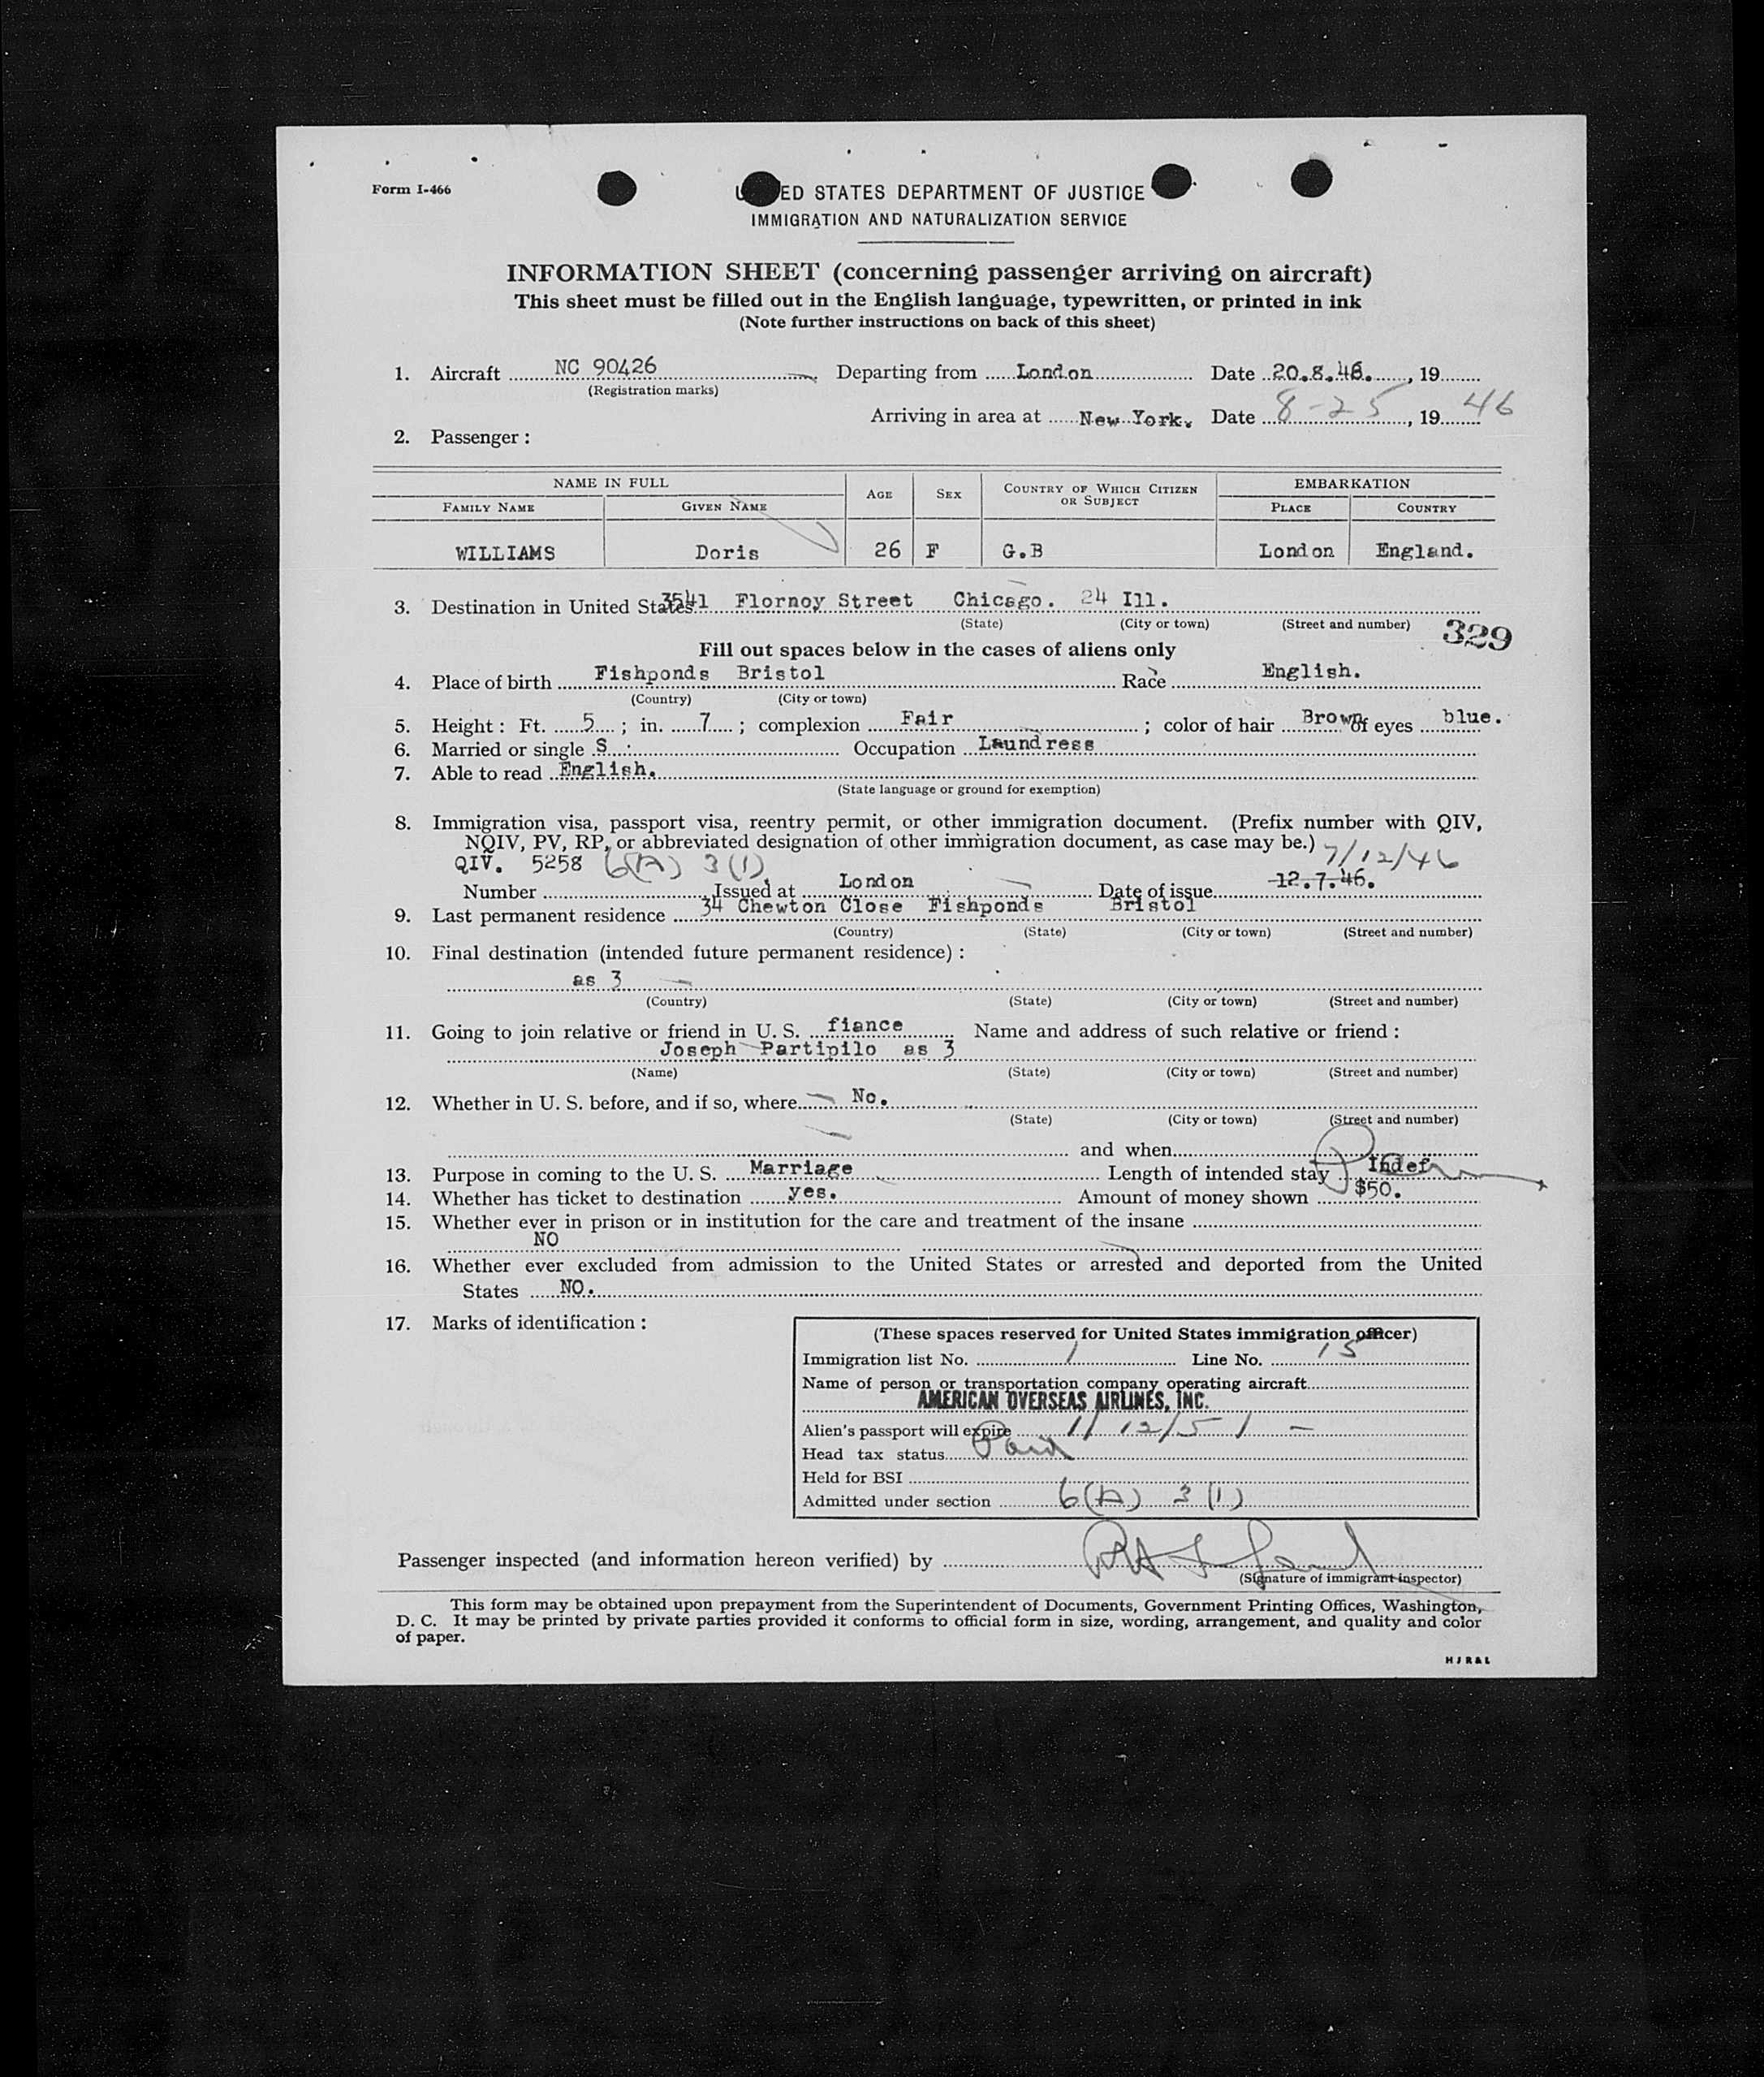 Form I-466
ED STATES DEPARTMENT OF JUSTICE
IMMIGRATION AND NATURALIZATION SERVICE
INFORMATION SHEET (concerning passenger arriving on aircraft)
This sheet must be filled out in the English language, typewritten, or printed in ink
(Note further instructions on back of this sheet)
1. Aircraft NC 90426 Departing from London Date 20.8.46. , 19
(Registration marks)
Arriving in area at New York. Date 8-25 , 19 46
2. Passenger :
NAME IN FULL AGE SEX COUNTRY OF WHICH CITIZEN OR SUBJECT EMBARKATION
FAMILY NAME GIVEN NAME PLACE COUNTRY
WILLIAMS Doris 26 F G.B London England.
3. Destination in United States 3541 Flornoy Street Chicago. 24 Ill.
(State) (City or town) (Street and number) 329
Fill out spaces below in the cases of aliens only
4. Place of birth Fishponds Bristol Race English.
(Country) (City or town)
5. Height : Ft. 5 ; in. 7 ; complexion Fair ; color of hair Brown of eyes blue.
6. Married or single S Occupation Laundress
7. Able to read English.
(State language or ground for exemption)
8. Immigration visa, passport visa, reentry permit, or other immigration document. (Prefix number with QIV,
NQIV, PV, RP, or abbreviated designation of other immigration document, as case may be.) 7/12/46
QIV. 5258 6(A) 3(1)
Number Issued at London Date of issue 12.7.46.
9. Last permanent residence 34 Chewton Close Fishponds Bristol
(Country) (State) (City or town) (Street and number)
10. Final destination (intended future permanent residence) :
as 3
(Country) (State) (City or town) (Street and number)
11. Going to join relative or friend in U. S. fiance Name and address of such relative or friend :
Joseph Partipilo as 3
(Name) (State) (City or town) (Street and number)
12. Whether in U. S. before, and if so, where No.
(State) (City or town) (Street and number)
and when
13. Purpose in coming to the U. S. Marriage Length of intended stay Indef
14. Whether has ticket to destination yes. Amount of money shown $50.
15. Whether ever in prison or in institution for the care and treatment of the insane
NO
16. Whether ever excluded from admission to the United States or arrested and deported from the United
States NO.
17. Marks of identification :
(These spaces reserved for United States immigration officer)
Immigration list No. 1 Line No. 15
Name of person or transportation company operating aircraft
AMERICAN OVERSEAS AIRLINES, INC.
Alien's passport will expire 1/12/51 -
Head tax status Paid
Held for BSI
Admitted under section 6(A) 3(1)
Passenger inspected (and information hereon verified) by
(Signature of immigrant inspector)
This form may be obtained upon prepayment from the Superintendent of Documents, Government Printing Offices, Washington,
D. C. It may be printed by private parties provided it conforms to official form in size, wording, arrangement, and quality and color
of paper.
HJR&L